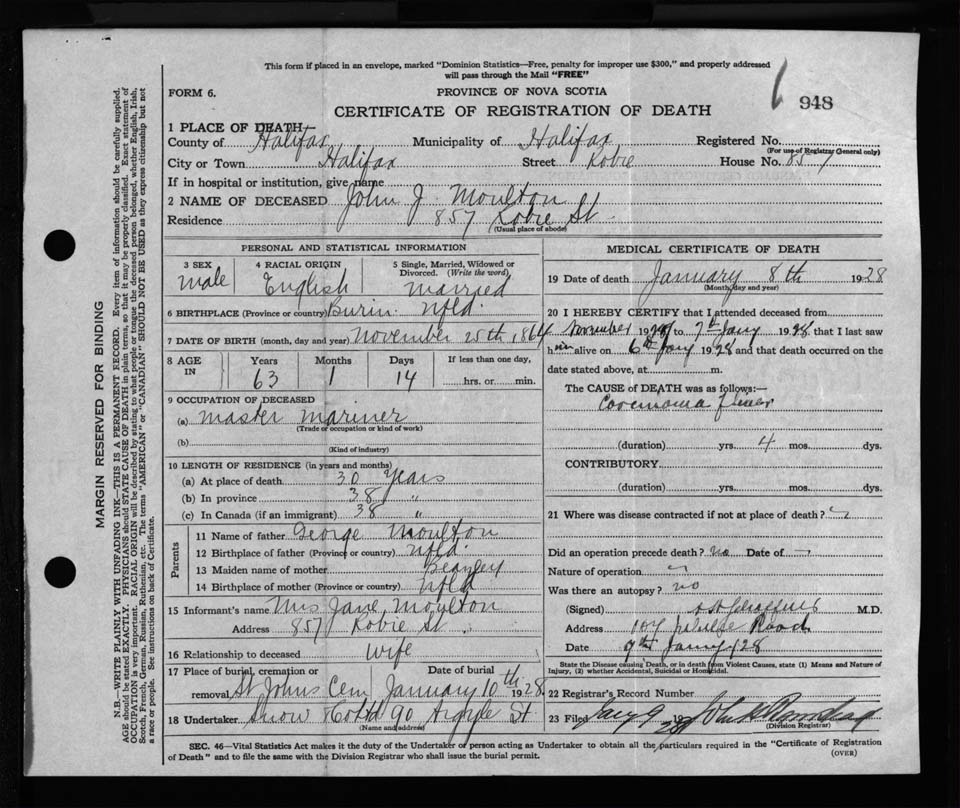 This form if placed in an envelope, marked "Dominion Statistics—Free, penalty for improper use $300," and properly addressed
will pass through the Mail "FREE"
FORM 6.
PROVINCE OF NOVA SCOTIA
948
CERTIFICATE OF REGISTRATION OF DEATH
1 PLACE OF DEATH
County of Halifax Municipality of Halifax Registered No.
(For use of Registrar General only)
City or Town Halifax Street Robie House No. 857
If in hospital or institution, give name
2 NAME OF DECEASED John J Moulton
Residence 857 Robie St
(Usual place of abode)
PERSONAL AND STATISTICAL INFORMATION
3 SEX
male
4 RACIAL ORIGIN
English
5 Single, Married, Widowed or
Divorced. (Write the word)
married
6 BIRTHPLACE (Province or country) Burin Nfld.
7 DATE OF BIRTH (month, day and year) November 25th 1864
8 AGE
IN
Years
63
Months
1
Days
14
If less than one day,
hrs. or min.
9 OCCUPATION OF DECEASED
(a) Master Mariner
(Trade or occupation or kind of work)
(b)
(Kind of industry)
10 LENGTH OF RESIDENCE (in years and months)
(a) At place of death 30 years
(b) In province 38 "
(c) In Canada (if an immigrant) 38 "
Parents
11 Name of father George Moulton
12 Birthplace of father (Province or country) Nfld.
13 Maiden name of mother
14 Birthplace of mother (Province or country) Nfld
15 Informant's name Mrs Jane Moulton
Address 857 Robie St
16 Relationship to deceased wife
17 Place of burial, cremation or Date of burial
removal St Johns Cem January 10th 1928
18 Undertaker Snow & Co Ltd 90 Argyle St
(Name and address)
MEDICAL CERTIFICATE OF DEATH
19 Date of death January 8th 1928
(Month, day and year)
20 I HEREBY CERTIFY that I attended deceased from
November 19 to 7th Jany 1928 that I last saw
him alive on 6th Jany 1928 and that death occurred on the
date stated above, at m.
The CAUSE of DEATH was as follows:—
(duration) yrs. 4 mos. dys.
CONTRIBUTORY
(duration) yrs. mos. dys.
21 Where was disease contracted if not at place of death?
Did an operation precede death? no Date of —
Nature of operation
Was there an autopsy? no
(Signed) M.D.
Address 104 Road
Date 9th Jany 28
State the Disease causing Death, or in death from Violent Causes, state (1) Means and Nature of
Injury, (2) whether Accidental, Suicidal or Homicidal.
22 Registrar's Record Number
23 Filed Jany 9 1928
(Division Registrar)
SEC. 46—Vital Statistics Act makes it the duty of the Undertaker or person acting as Undertaker to obtain all the particulars required in the "Certificate of Registration
of Death" and to file the same with the Division Registrar who shall issue the burial permit.
(OVER)
MARGIN RESERVED FOR BINDING
N.B.—WRITE PLAINLY WITH UNFADING INK—THIS IS A PERMANENT RECORD. Every item of information should be carefully supplied.
AGE should be stated EXACTLY. PHYSICIANS should STATE CAUSE OF DEATH in plain terms, so that it may be properly classified. Exact statement of
OCCUPATION is very important. RACIAL ORIGIN will be described by stating to what people or tongue the deceased person belonged, whether English, Irish,
Scotch, French, German, Russian, Ruthenian, etc. The terms "AMERICAN" or "CANADIAN" SHOULD NOT BE USED as they express citizenship but not
a race or people. See instructions on back of Certificate.